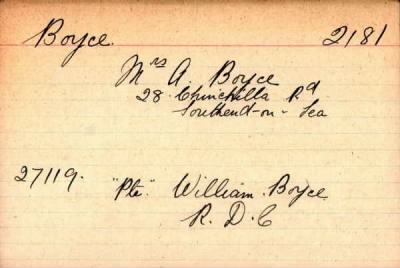 Boyce. 2181
Mrs A. Boyce
28 Chinchilla Rd
Southend-on-Sea
27119. "Pte". William Boyce
R. D. C